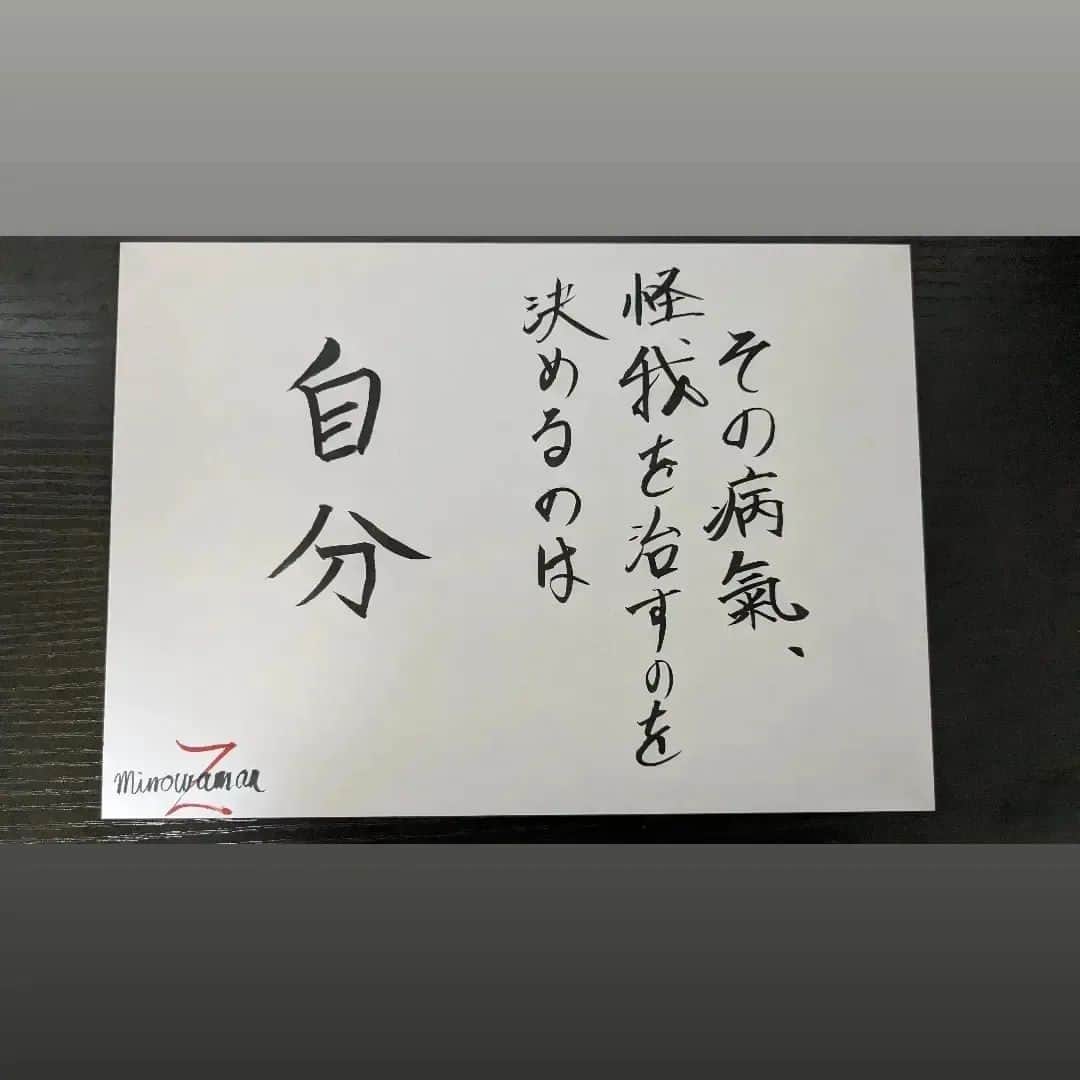 その病氣、
怪我を治すのを
決めるのは
自分
minowaman
Z